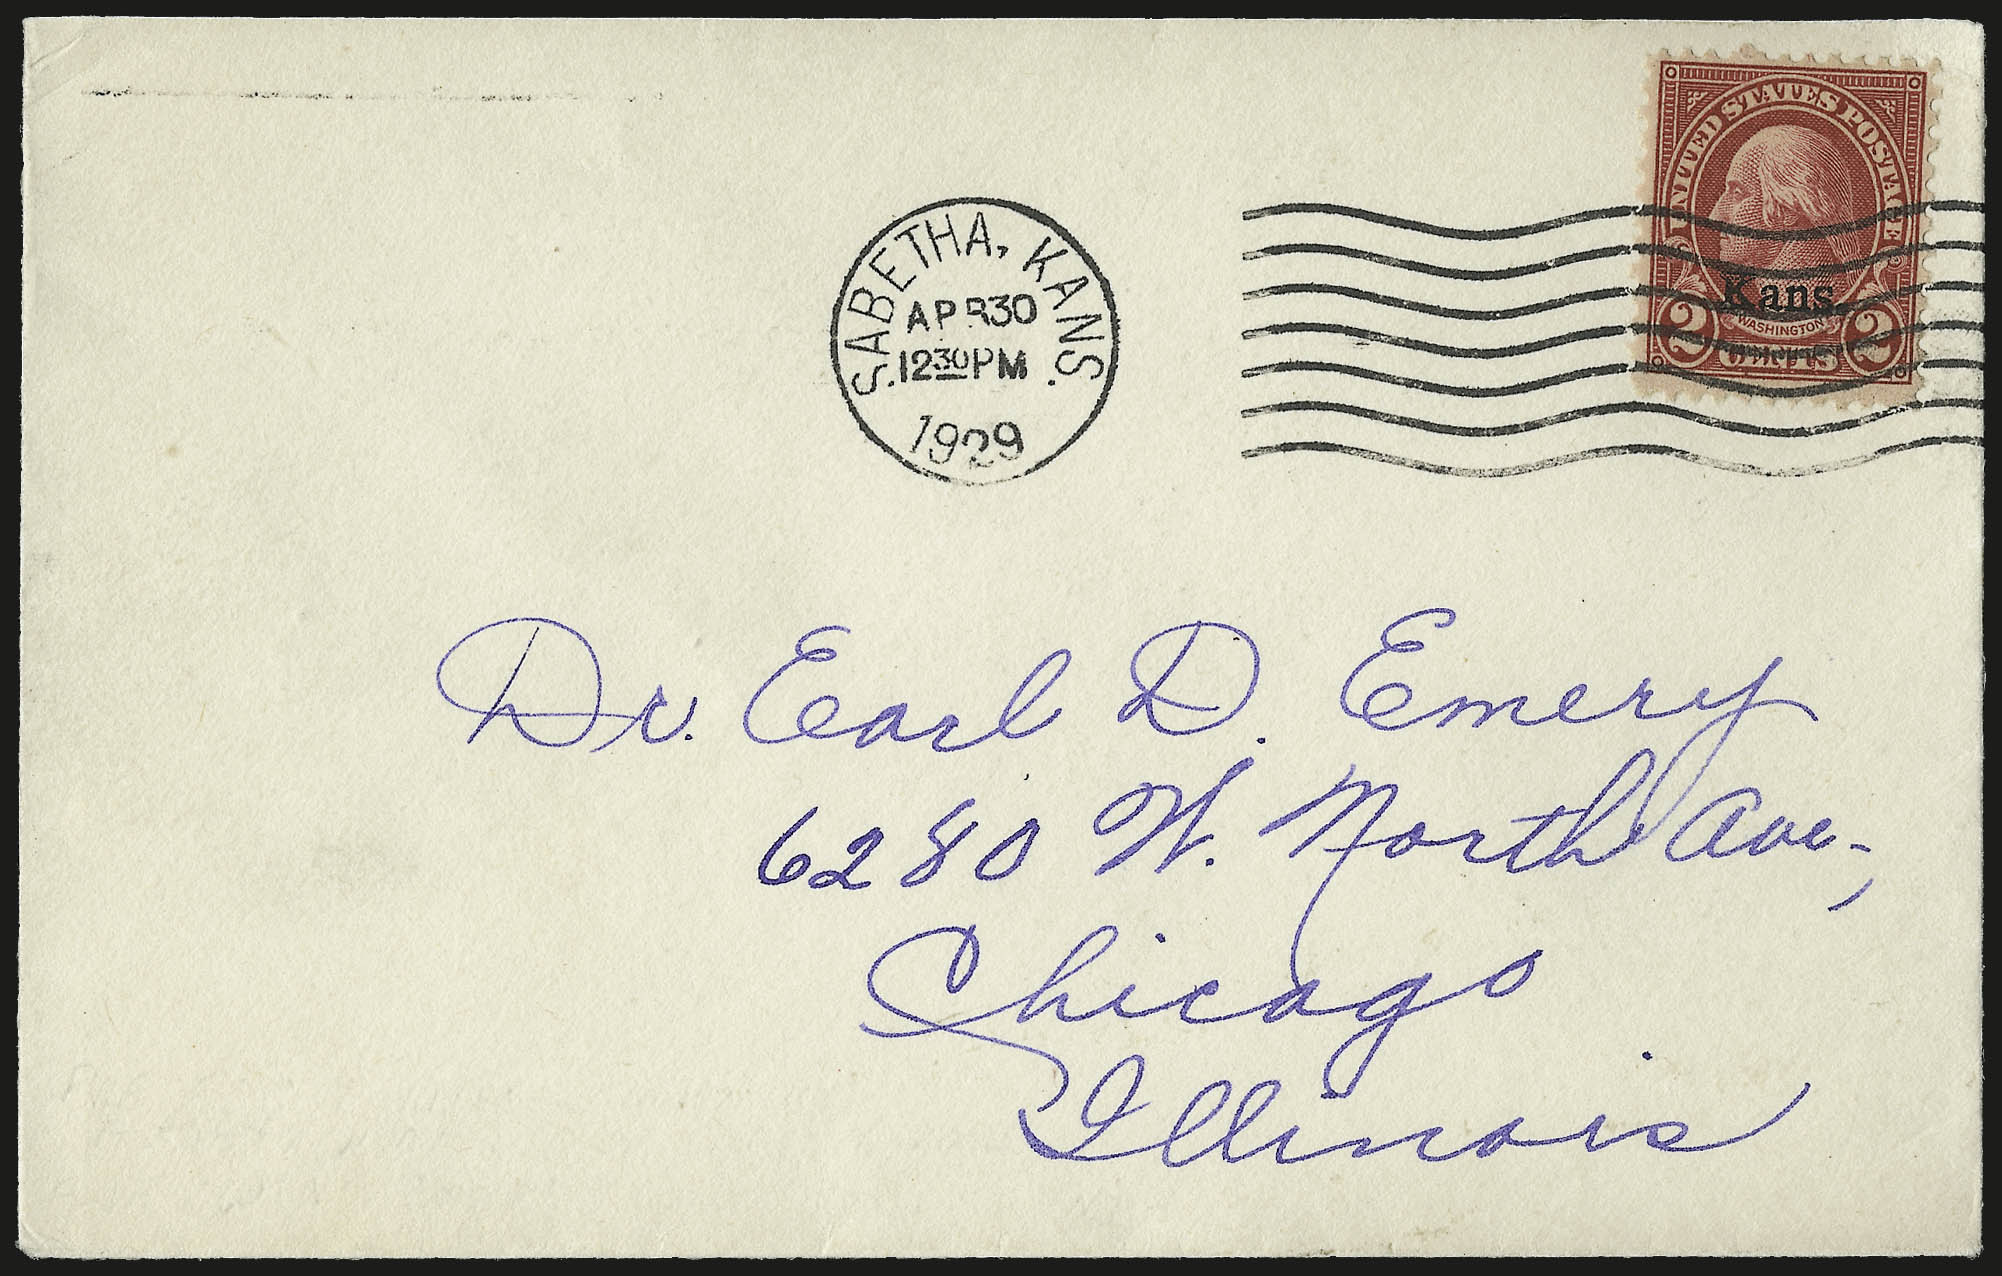 UNITED STATES POSTAGE
Kans.
WASHINGTON
2 CENTS 2
SABETHA, KANS.
APR 30
12 30 PM
1929
Dr. Earl D. Emery
6280 W. North Ave.,
Chicago
Illinois